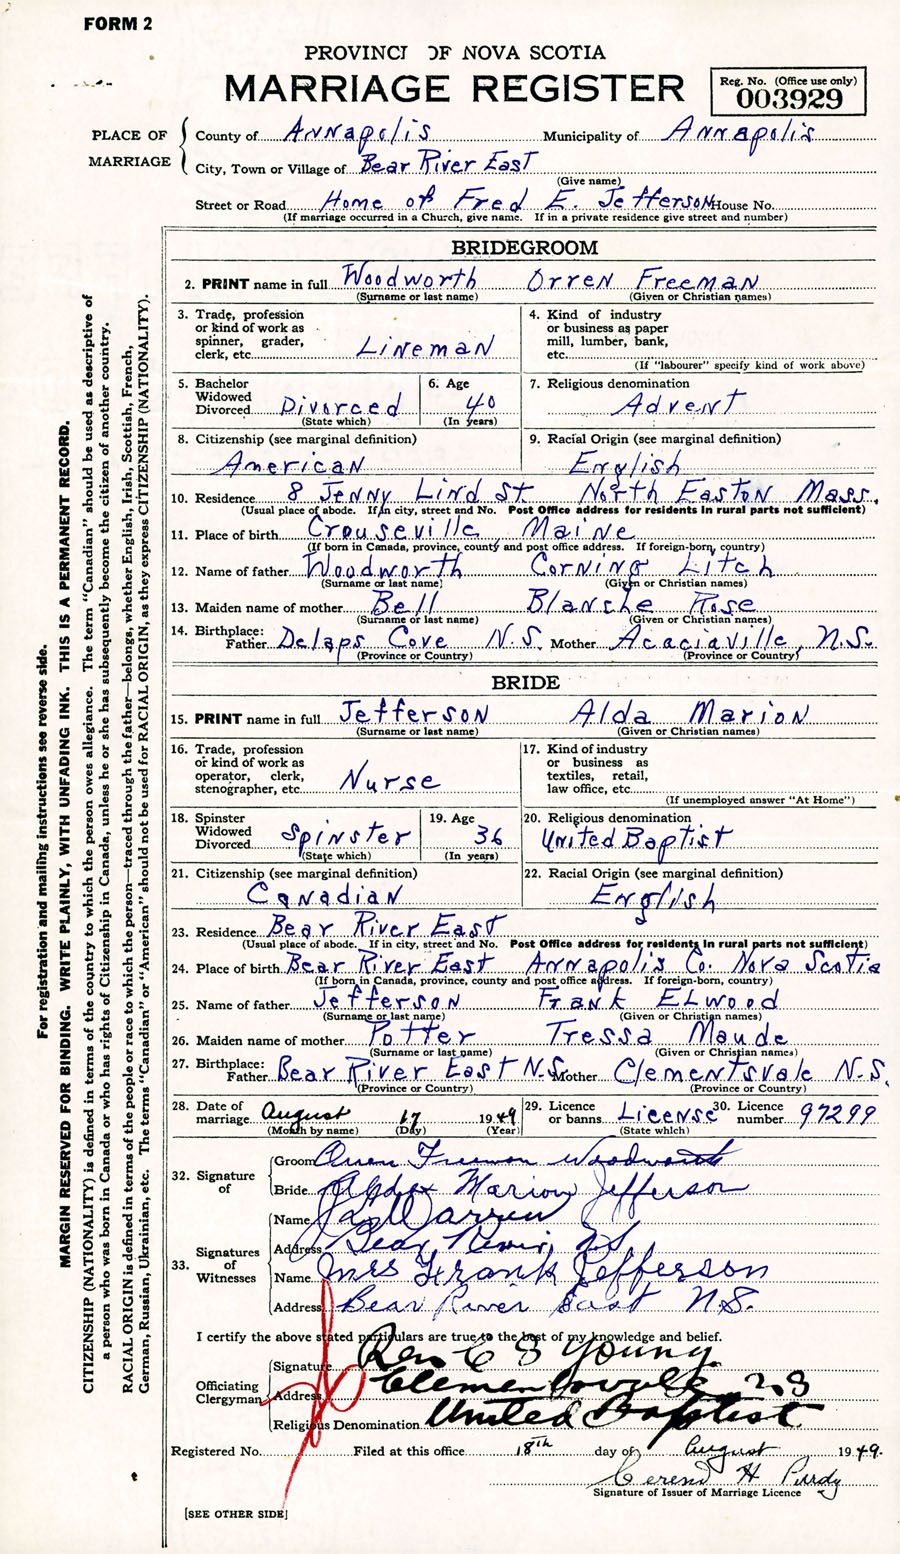 FORM 2
PROVINCE OF NOVA SCOTIA
MARRIAGE REGISTER
Reg. No. (Office use only)
003929
PLACE OF MARRIAGE
County of Annapolis Municipality of Annapolis
City, Town or Village of Bear River East
(Give name)
Street or Road Home of Fred E. Jefferson House No.
(If marriage occurred in a Church, give name. If in a private residence give street and number)
BRIDEGROOM
2. PRINT name in full Woodworth Orren Freeman
(Surname or last name) (Given or Christian names)
3. Trade, profession or kind of work as spinner, grader, clerk, etc. Lineman
4. Kind of industry or business as paper mill, lumber, bank, etc.
(If "labourer" specify kind of work above)
5. Bachelor Widowed Divorced Divorced
(State which)
6. Age 40
(In years)
7. Religious denomination
Advent
8. Citizenship (see marginal definition)
American
9. Racial Origin (see marginal definition)
English
10. Residence 8 Jenny Lind St North Easton Mass.
(Usual place of abode. If in city, street and No. Post Office address for residents in rural parts not sufficient)
11. Place of birth Crouseville, Maine
(If born in Canada, province, county and post office address. If foreign-born, country)
12. Name of father Woodworth Corning Litch
(Surname or last name) (Given or Christian names)
13. Maiden name of mother Bell Blanche Rose
(Surname or last name) (Given or Christian names)
14. Birthplace: Father Delaps Cove N.S. Mother Acaciaville, N.S.
(Province or Country) (Province or Country)
BRIDE
15. PRINT name in full Jefferson Alda Marion
(Surname or last name) (Given or Christian names)
16. Trade, profession or kind of work as operator, clerk, stenographer, etc. Nurse
17. Kind of industry or business as textiles, retail, law office, etc.
(If unemployed answer "At Home")
18. Spinster Widowed Divorced Spinster
(State which)
19. Age 36
(In years)
20. Religious denomination
United Baptist
21. Citizenship (see marginal definition)
Canadian
22. Racial Origin (see marginal definition)
English
23. Residence Bear River East
(Usual place of abode. If in city, street and No. Post Office address for residents in rural parts not sufficient)
24. Place of birth Bear River East Annapolis Co. Nova Scotia
(If born in Canada, province, county and post office address. If foreign-born, country)
25. Name of father Jefferson Frank Elwood
(Surname or last name) (Given or Christian names)
26. Maiden name of mother Potter Tressa Maude
(Surname or last name) (Given or Christian names)
27. Birthplace: Father Bear River East N.S. Mother Clementsvale N.S.
(Province or Country) (Province or Country)
28. Date of marriage August 17 1949
(Month by name) (Day) (Year)
29. Licence or banns License
(State which)
30. Licence number 97299
32. Signature of
Groom Orren Freeman Woodworth
Bride Alda Marion Jefferson
33. Signatures of Witnesses
Name Warren
Address Bear River, N.S.
Name Mrs Frank Jefferson
Address Bear River East N.S.
I certify the above stated particulars are true to the best of my knowledge and belief.
Officiating Clergyman
Signature Rev C S Young
Address Clementsvale N.S.
Religious Denomination United Baptist
Registered No. Filed at this office 18th day of August 1949.
H Purdy
Signature of Issuer of Marriage Licence
[SEE OTHER SIDE]
For registration and mailing instructions see reverse side.
MARGIN RESERVED FOR BINDING. WRITE PLAINLY, WITH UNFADING INK. THIS IS A PERMANENT RECORD.
CITIZENSHIP (NATIONALITY) is defined in terms of the country to which the person owes allegiance. The term "Canadian" should be used as descriptive of
a person who was born in Canada or who has rights of Citizenship in Canada, unless he or she has subsequently become the citizen of another country.
RACIAL ORIGIN is defined in terms of the people or race to which the person—traced through the father—belongs, whether English, Irish, Scottish, French,
German, Russian, Ukrainian, etc. The terms "Canadian" or "American" should not be used for RACIAL ORIGIN, as they express CITIZENSHIP (NATIONALITY).